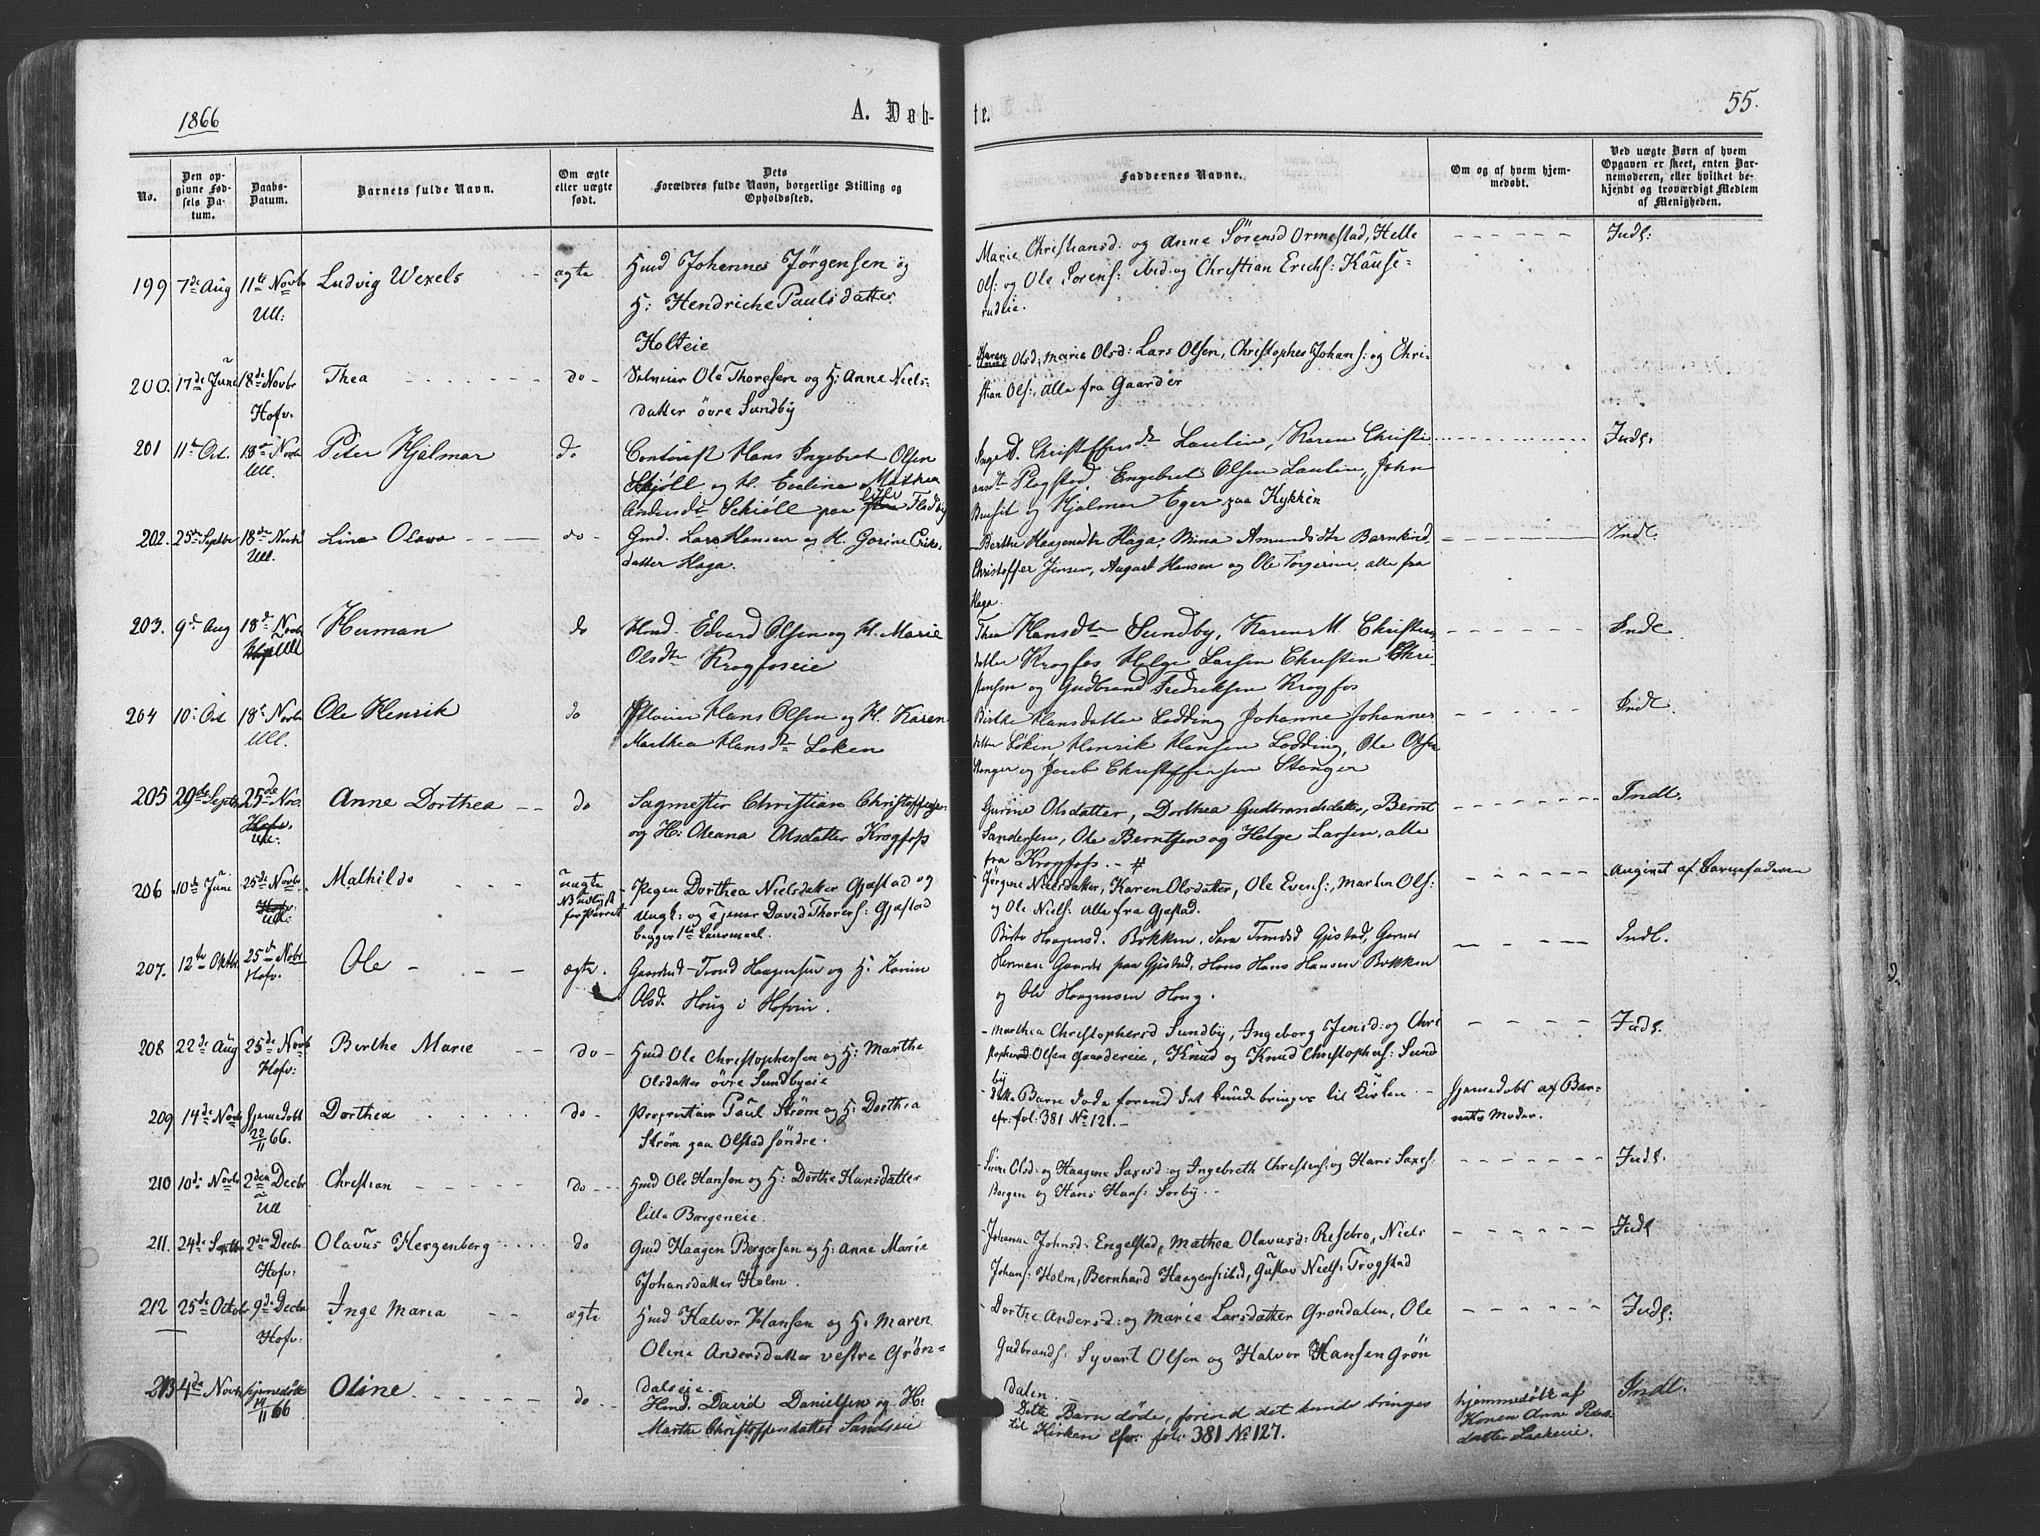 1866
A. Døb-
te.
55.
No.
Den op-
givne Fød-
sels Da-
tum.
Daabs-
Datum.
Barnets fulde Navn.
Om ægte
eller uægte
født.
Dets
Forældres fulde Navn, borgerlige Stilling og
Opholdssted.
Faddernes Navne.
Om og af hvem hjem-
medøbt.
Ved uægte Børn af hvem
Opgaven er skeet, enten Bar-
nemoderen, eller hvilket be-
kjendt og troværdigt Medlem
af Menigheden.
199 7de Aug 11te Novb Ludvig Wexels ægte Hmd Johannes Jörgensen og
Ull: H: Hendriche Paulsdatter
Holteie
Marie Christiansd: og Anne Sörensd Ormestad, Helle
Ols: og Ole Sorens: ibid: og Christian Erichs: Kause-
rudeie. Indl:
200. 17de June 18de Novbr Thea do Selveier Ole Thoresen og H: Anne Niels-
Hofv. datter övre Sundby
Karen Olsd, Marie Olsd: Lars Olsen, Christopher Johans: og Chri-
stian Ols:, alle fra Gaarder
201 11te Oct. 18de Novb Peter Hjalmar do Hans Ingebret Olsen
Ull. Schjöll og H. Evelina Mathea
Andersdtr Schiöll paa lille Fladby
Inge D. Christoffersdtr Laulin, Karen Christi
ansdtr Plogstad Engebret Olsen Laulin, John
og Hjalmar Eger paa Kykken Indl:
202. 25de Septbr 18de Novbr Lina Olava do Gmd. Lars Hansen og H. Gorine Erics-
Ull. datter Haga.
Berthe Haagensdtr Haga, Mina Amundsdtr Barnkind,
Christoffer Jensen, August Hansen og Ole Torgersen, alle fra
Haga. Indl.
203. 9de Aug 18de Novbr Herman do Hmd. Edvard Olsen og H. Marie
Ull Olsdtr Krogfoseie
Thea Hansdtr Sundby, Karen M. Christens
datter Krogfos Helge Larsen Christen Chri-
stensen og Gudbrand Fredriksen Krogfos Indl.
204 10: Oct 18de Novbr Ole Henrik do Selveier Hans Olsen og H. Karen
Ull. Marthea Hansdtr Løken
Birthe Hansdatter Lodding Johanne Johannes
datter Løken Henrik Hansen Lodding, Ole Olsen
Stenger og Jacob Christoffersen Stenger Indl.
205 29de Septbr 25de Nov. Anne Dorthea do Sagmester Christian Christoffersen
Hofv. Ull: og H: Oleana Olsdatter Krogfoss
Gurine Olsdatter, Dorthea Gudbrandsdatter, Bernt
Sandersen, Ole Berntsen og Helge Larsen, alle
fra Krogfoss. Indl.
206 10de June 25de Novbr. Mathilde uægte Pigen Dorthea Nielsdatter Gjæstad og
Hofv: Ull: NB udlagt for Parret Ungk: og Tjener David Thorers: Gjæstad
begges 1ste Leiermaal.
Jörgine Nielsdatter, Karen Olsdatter, Ole Evens:, Martin Ols:
og Ole Niels: alle fra Gjæstad. Angivet af Barnefaderen
207. 12te Oktbr 25de Novbr Ole ægte. Gaardmd Trond Haagensen og H. Karen
Hofv. Olsd. Houg i Hofvin.
Birte Haagensd. Bokken, Sara Trondsd Gjestad, Garver
Herman Gaarder paa Gjestad, Hans Hansen Bokken
og Ole Haagensen Houg. Indl.
208 22de Aug 25de Novb Birthe Marie do Hmd Ole Christophersen og H: Marthe
Hofv: Olsdatter övre Sundbyeie
Marthea Christophersd Sundby, Ingeborg Jensd: og Chri
stopher Olsen Gaardereie, Knud og Knud Christophers: Sund
by Indl.
209 14de Novb Hjemedöbt Dorthea do Proprietair Paul Ström og H: Dorthea
22/11 66. Ström paa Olstad söndre.
dette Barn döde forend det kunde bringes til Kirken
cfr. fol: 381 No 121. Hjemedöbt af Bar-
nets Moder.
210 10de Novbr 2den Decbr Christian do Hmd Ole Hansen og H: Dorthe Hansdatter
Ull lille Borgeneie.
Sirene Olsd: og Haagene Saxesd: og Ingebreth Christens: og Hans Saxes:
Borgen og Hans Hans: Sorby. Indl.
211. 24de Septbr 2den Decbr Olavus Herzenberg do Gmd Haagen Bergersen og H: Anne Marie
Hofv: Johansdatter Holm.
Johanne Johnsd: Engelstad, Mathea Olavusd: Resebro, Niels
Johans: Holm, Bernhard Haagens: ibid, Gustav Niels: Trogstad Indl
212 25de Octobr 9de Decbr Inge Maria ægte Hmd Halvor Hansen og H: Maren
Hofv: Oline Andersdatter vestre Grön-
dalseie.
Dorthe Andersd: og Marie Larsdatter Grøndalen, Ole
Gudbrands: Syvart Olsen og Halvor Hansen Grön
dalen. Indl:
213 4de Novb hjemedøbt Oline do Hmd. David Danielsen og H:
11/11 66 Marthe Christoffersdatter Sandseie
Dette Barn döde, forend det kunde bringes
til Kirken cfr. fol: 381 No 127. hjemmedøbt af
Konen Anne Peders
datter Løkeneie. Indl.